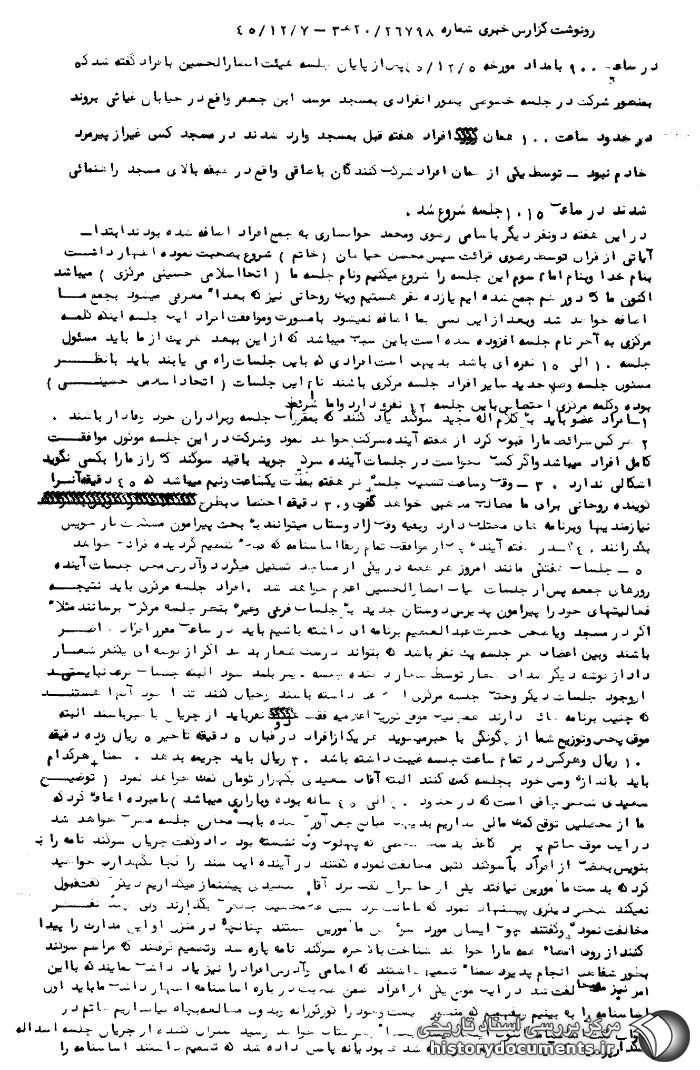 رونوشت گزارس خبری شماره ۲۶۷۹۸/۲۰هـ۳ – ۴۵/۱۲/۷
در ساعت ۹۰۰ بامداد مورخه ۴۵/۱۲/۵ پس از پایان جلسه هیئت انصارالحسین بافراد گفته شد که
بمنظور شرکت در جلسه خصوصی بطور انفرادی بمسجد موسی ابن جعفر واقع در خیابان غیاثی بروند
در حدود ساعت ۱۰۰ همان افراد هفته قبل بمسجد وارد شدند در مسجد کسی غیراز پیرمرد
خادم نبود – توسط یکی از همان افراد شرکت کنندگان باطاقی واقع در طبقه بالای مسجد راهنمائی
شدند در ساعت ۱۰۱۵ جلسه شروع شد .
در این هفته دونفر دیگر باسامی رضوی ومحمد خوانساری به جمع افراد اضافه شده بودند ابتدا
آیاتی از قرآن توسط رضوی قرائت سپس محسن (خاتم) شروع بصحبت نموده اظهار داشت
بنام خدا وبنام امام سوم این جلسه را شروع میکنیم ونام جلسه ما (اتحاد اسلامی حسینی مرکزی) میباشد
اکنون ما که دور هم جمع شده ایم یازده نفر هستیم ویک روحانی نیز که بعدا" معرفی میشود بجمع ما
اضافه خواهد شد وبعد از این کسی بما اضافه نمیشود بامشورت وموافقت افراد این جلسه اینکه کلمه
مرکزی به آخر نام جلسه افزوده شده است باین سبب میباشد که از این ببعد هر یک از ما باید مسئول
جلسه ۱۰ الی ۱۵ نفره ای باشد بدیهی است افرادی که باین جلسات راه می یابند باید بانظر
مسئول جلسه وصلاحدید سایر افراد جلسه مرکزی باشند نام این جلسات (اتحاد اسلامی حسینی)
بوده وکلمه مرکزی اختصاص باین جلسه ۱۲ نفری دارد واما شرائط
۱– افراد عضو باید بکلام اله مجید سوگند یاد کنند که بمقررات جلسه وبرادران خود وفادار باشند .
۲– هر کس شرائط ما را قبول کرد از هفته آینده شرکت خواهد نمود وشرکت در این جلسه موکول بموافقت
کامل افراد میباشد واگر کسی نخواست در جلسات آینده شرکت جوید باقید سوگند که راز ما را بکسی نگوید
اشکالی ندارد . ۳– وقت وساعت تشکیل جلسه هر هفته بمدت یکساعت ونیم میباشد که ۴۵ دقیقه آنرا
گوینده روحانی برای ما مطالب مذهبی خواهد گفت و ۳۰ دقیقه اختصاص بطرح
نیازمندیها وبرنامه های مختلف دارد وبقیه وقت را دوستان میتوانند به بحث پیرامون مسئله
بگذرانند . ۴– هفته آینده موافقت تمام رفقا اساسنامه که تنظیم گردیده قرائت خواهد
۵– جلسات هفتگی مانند امروز هر هفته در یکی از مساجد تشکیل میگردد وآدرس محل جلسات آینده
روزهای جمعه پس از جلسات هیئت انصارالحسین اعلام خواهد شد . افراد جلسه مرکزی باید نتیجه
فعالیتهای خود را پیرامون پذیرش دوستان جدید به جلسات فرعی وغیره بنظر جلسه مرکزی برسانند مثلا"
اگر در مسجد ویا صحن حضرت عبدالعظیم برنامه ای داشته باشیم باید در ساعت مقرر افراد حاضر
باشند وبین اعضاء هر جلسه یک نفر باشد که بتواند درست شعار بدهد اگر از گوشه ای یکنفر شعار
داد از گوشه دیگر صدای شعار توسط شعار دهنده جلسه دیگر بلند شود البته جلسات فرعی نبایستی
از وجود جلسات دیگر وحتی جلسه مرکزی داشته باشند وخیال کنند تنها خود آنها هستند
که چنین برنامه هائی دارند همچنین موقع توزیع اعلامیه فقط دو نفر باید از جریان باخبر باشند البته
موقع پخش وتوزیع شما از چگونگی با خبر میشوید هر یک از افراد در قبال ۵ دقیقه تاخیر ۵ ریال وده دقیقه
۱۰ ریال وهرکس در تمام ساعت جلسه غیبت داشته باشد ۳۰ ریال باید جریمه بدهد . ضمنا" هر کدام
باید باندازه وسع خود بجلسه کمک کنند البته آقای سعیدی یکهزار تومان کمک خواهد نمود (توضیح
سعیدی شخص چاقی است که در حدود ۴۰ الی ۴۵ ساله بوده وبازاری میباشد) نامبرده اضافه کرد که
ما از محصلین توقع کمک مالی نداریم بدیهی است مبالغ جمع آوری شده بابت مخارج جلسه مصرف خواهد شد
در این موقع خاتم کاغذ بدست شخصی که پهلوی وی نشسته بود داد وگفت جریان سوگند نامه را
بنویس بعضی از افراد باسوگند کتبی مخالفت نموده گفتند در آینده این سند را کجا نگهداری خواهید
کرد که بدست مامورین نیافتد یکی از حاضران گفت نزد آقای سعیدی پیشنماز میگذاریم دیگری گفت قبول
نمیکند شخص دیگری پیشنهاد نمود که بگذارند ولی نفر
مخالفت نموده وگفتند چون ایشان مورد سوء ظن مامورین هستند چنانچه در منزل او این مدارک را پیدا
کنند از روی امضاء همه ما را خواهند شناخت بالاخره سوگند نامه پاره شد وتصمیم گرفتند که مراسم سوگند
بطور شفاهی انجام پذیرد ضمنا" تصمیم داشتند که اسامی وآدرس افراد را نیز یاد داشت نمایند که بااین
امر نیز مخالفت شد در این موقع یکی از افراد ضمن صحبت در باره اساسنامه اظهار داشت ما باید اول
اساسنامه را به بینیم وبفهمیم که منظور چیست وخود را کورکورانه وبدون مطالعه بچاه نیاندازیم خاتم در
شد که تصمیم داشتند اساسنامه را
مرکز بررسی اسناد تاریخی
historydocuments.ir